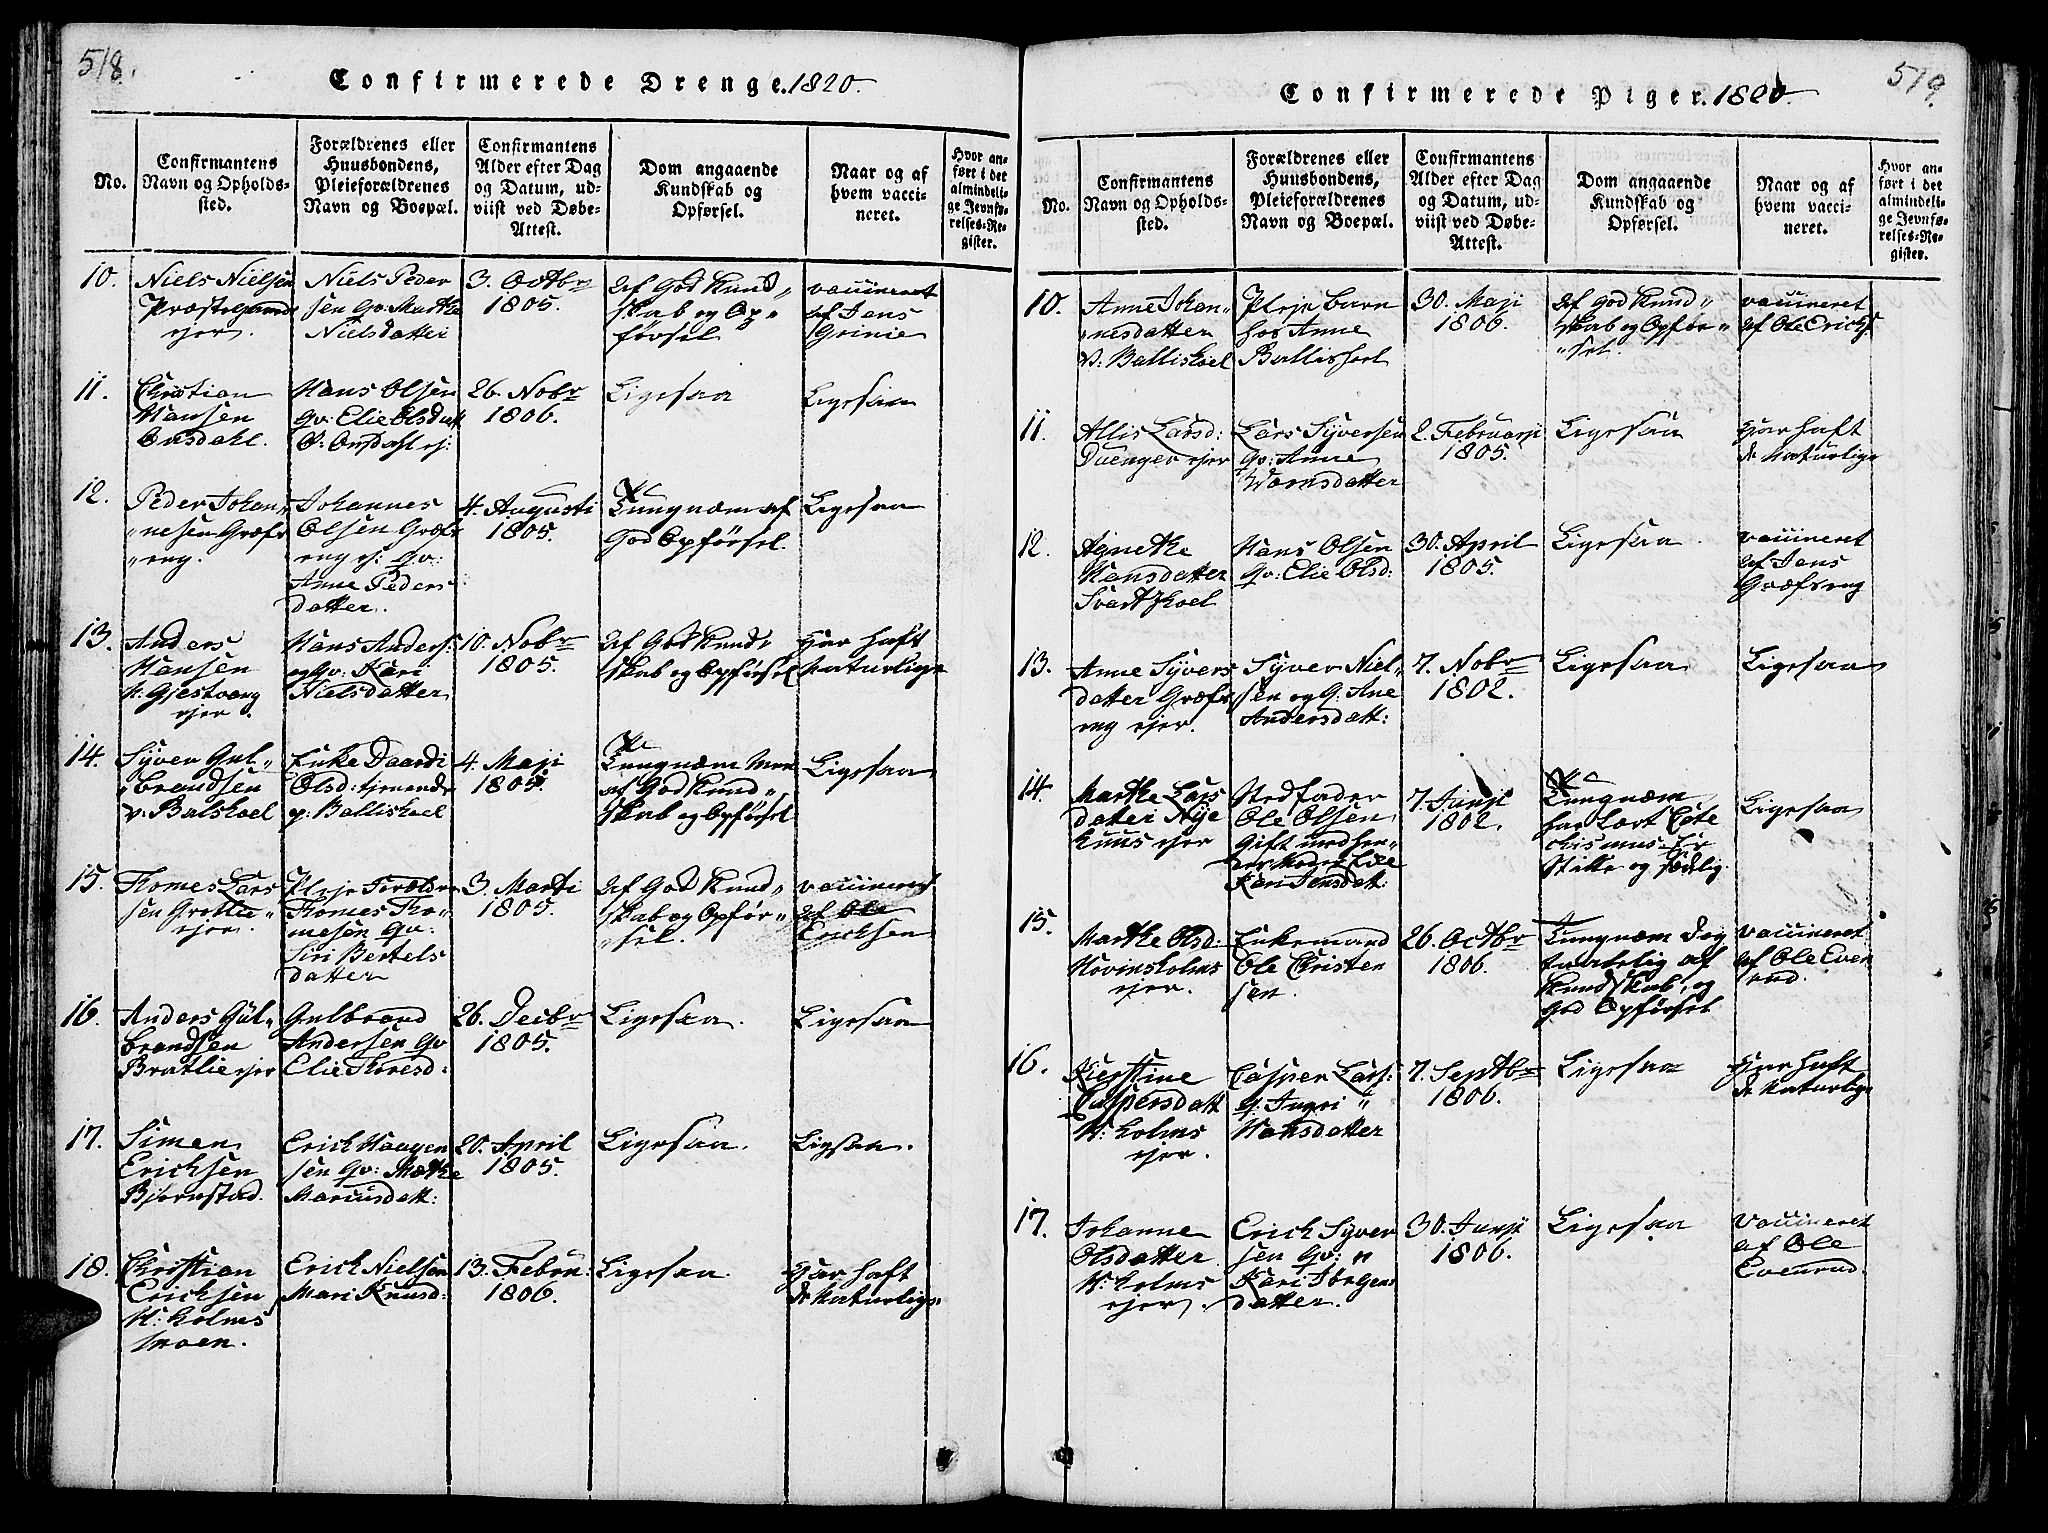 518.
Confirmerede Drenge. 1820.
No.
Confirmantens
Navn og Opholds-
sted.
Forældrenes eller
Huusbondens,
Pleieforældrenes
Navn og Boepæl.
Confirmantens
Alder efter Dag
og Datum, ud-
viist ved Døbe-
Attest.
Dom angaaende
Kundskab og
Opførsel.
Naar og af
hvem vacci-
neret.
Hvor an-
ført i det
almindeli-
ge Jevnfø-
relses-Re-
gister.
10.
Niels Nielsen
Præstegaard
ejer.
Niels Peder
sen Gv: Marthe
Nielsdatter
3. Octbr
1805.
af God Kund„
skab og Op„
førsel
vaccineret
af Jens
Grinie
11.
Christian
Hansen
Onsdahl.
Hans Olsen
gv: Elie Olsdatt
v: Onsdahl ej:
26. Nobr
1806.
Ligesaa
Ligesaa
12.
Peder Johan„
„nesen Græfs
„eng.
Johannes
Olsen Græfs
eng ej: Gv:
Anne Peders
datter.
4. Augusti
1805.
Tungnæm af
God Opførsel.
Ligesaa
13.
Anders
Hansen
N: Gjestvang
ejer.
Hans Anders:
og Gv: Kari
Nielsdatter
10. Nobr
1805.
af God Kund
skab og Opførsel
Har haft
Naturlige
14.
Syver Gul„
brandsen
v: Balskoel
Enke Daardi
Olsd: tjenende
p: Balliskoel
4. Maji
1805.
Tungnæm Men
af God Kund„
skab og Opførsel
Ligesaa
15.
Thomes Lars
sen Grøtlie„
ejer.
Pleje Forældre
Thomes Tho„
mesen Gv:
Siri Bertels
datter
3. Marti
1805.
af God Kund„
skab og Opfør„
„sel.
vaccineret
af Ole
Ericksen
16.
Anders Gul„
brandsen
Bratlie ejer
Gulbrand
Andersen Gv
Elie Thoresd:
26. Decbr
1805.
Ligesaa.
Ligesaa
17.
Simen
Ericksen
Bjørnstad.
Erick Haagen
sen Gv: Mathe
Marcusdatt:
20. April
1805.
Ligesaa.
Ligsaa.
18.
Christian
Ericksen
N: Kolms
moen.
Erick Nielsen
Mari Knusd:
13. Febru:
1806.
Ligesaa.
Har haft
de Naturlige
519.
Confirmerede Piger. 1820.
No.
Confirmantens
Navn og Opholds-
sted.
Forældrenes eller
Huusbondens,
Pleieforældrenes
Navn og Boepæl.
Confirmantens
Alder efter Dag
og Datum, ud-
viist ved Døbe-
Attest.
Dom angaaende
Kundskab og
Opførsel.
Naar og af
hvem vacci-
neret.
Hvor an-
ført i det
almindeli-
ge Jevnfø-
relses-Re-
gister.
10.
Anne Johan„
„nesdatter
v: Balliskoel
Pleje barn
hos Anne
Balliskoel
30. Maji
1806.
af god Kund„
skab og Opfør„
„sel.
vaccineret
af Ole Ericks
11.
Allis Larsd:
Duenger ejer
Lars Syversen
Gv: Anne
2. Februarji
1805.
Ligesaa
Har haft
de Naturlige
12.
Agnethe
Hansdatter
Svartskoel
Hans Olsen
Gv: Elie Olsd:
30. April
1805.
Ligesaa.
vaccineret
af Jens
Græfseng
13.
Anne Syvers
datter Græfs
eng ejer.
Syver Niel„
sen og G: Ane
Andersdatt:
7. Nobr
1802.
Ligesaa
Ligesaa
14.
Marthe Lars
datter Nye
huus ejer
Stedfader
Ole Olsen
Gift med hen„
des Moder
Kari Jensdatt:
7. Junji
1802.
Tungnæm
har Lært Cate
chismus Er
Stille og sædlig.
Ligesaa
15.
Marthe Olsd:
Hovinsholms
ejer.
Enkemand
Ole Christen
sen.
26. Octbr
1806.
Tungnæm dog
taalelig af
Kundskab, og
God Opførsel
vaccineret
af Ole Even
rud.
16.
Kierstine
Caspersdatt
N: Kolms
ejer.
Casper Lars:
g: Ingri„
Hansdatter
7. Septbr
1806.
Ligesaa
Har haft
de Naturlige
17.
Johanne
Olsdatter
N: Kolms
ejer.
Erick Syver
sen Gv:„
Kari Jørgens
datter.
30. Junji
1806.
Ligesaa
Vaccineret
af Ole
Evenrud.